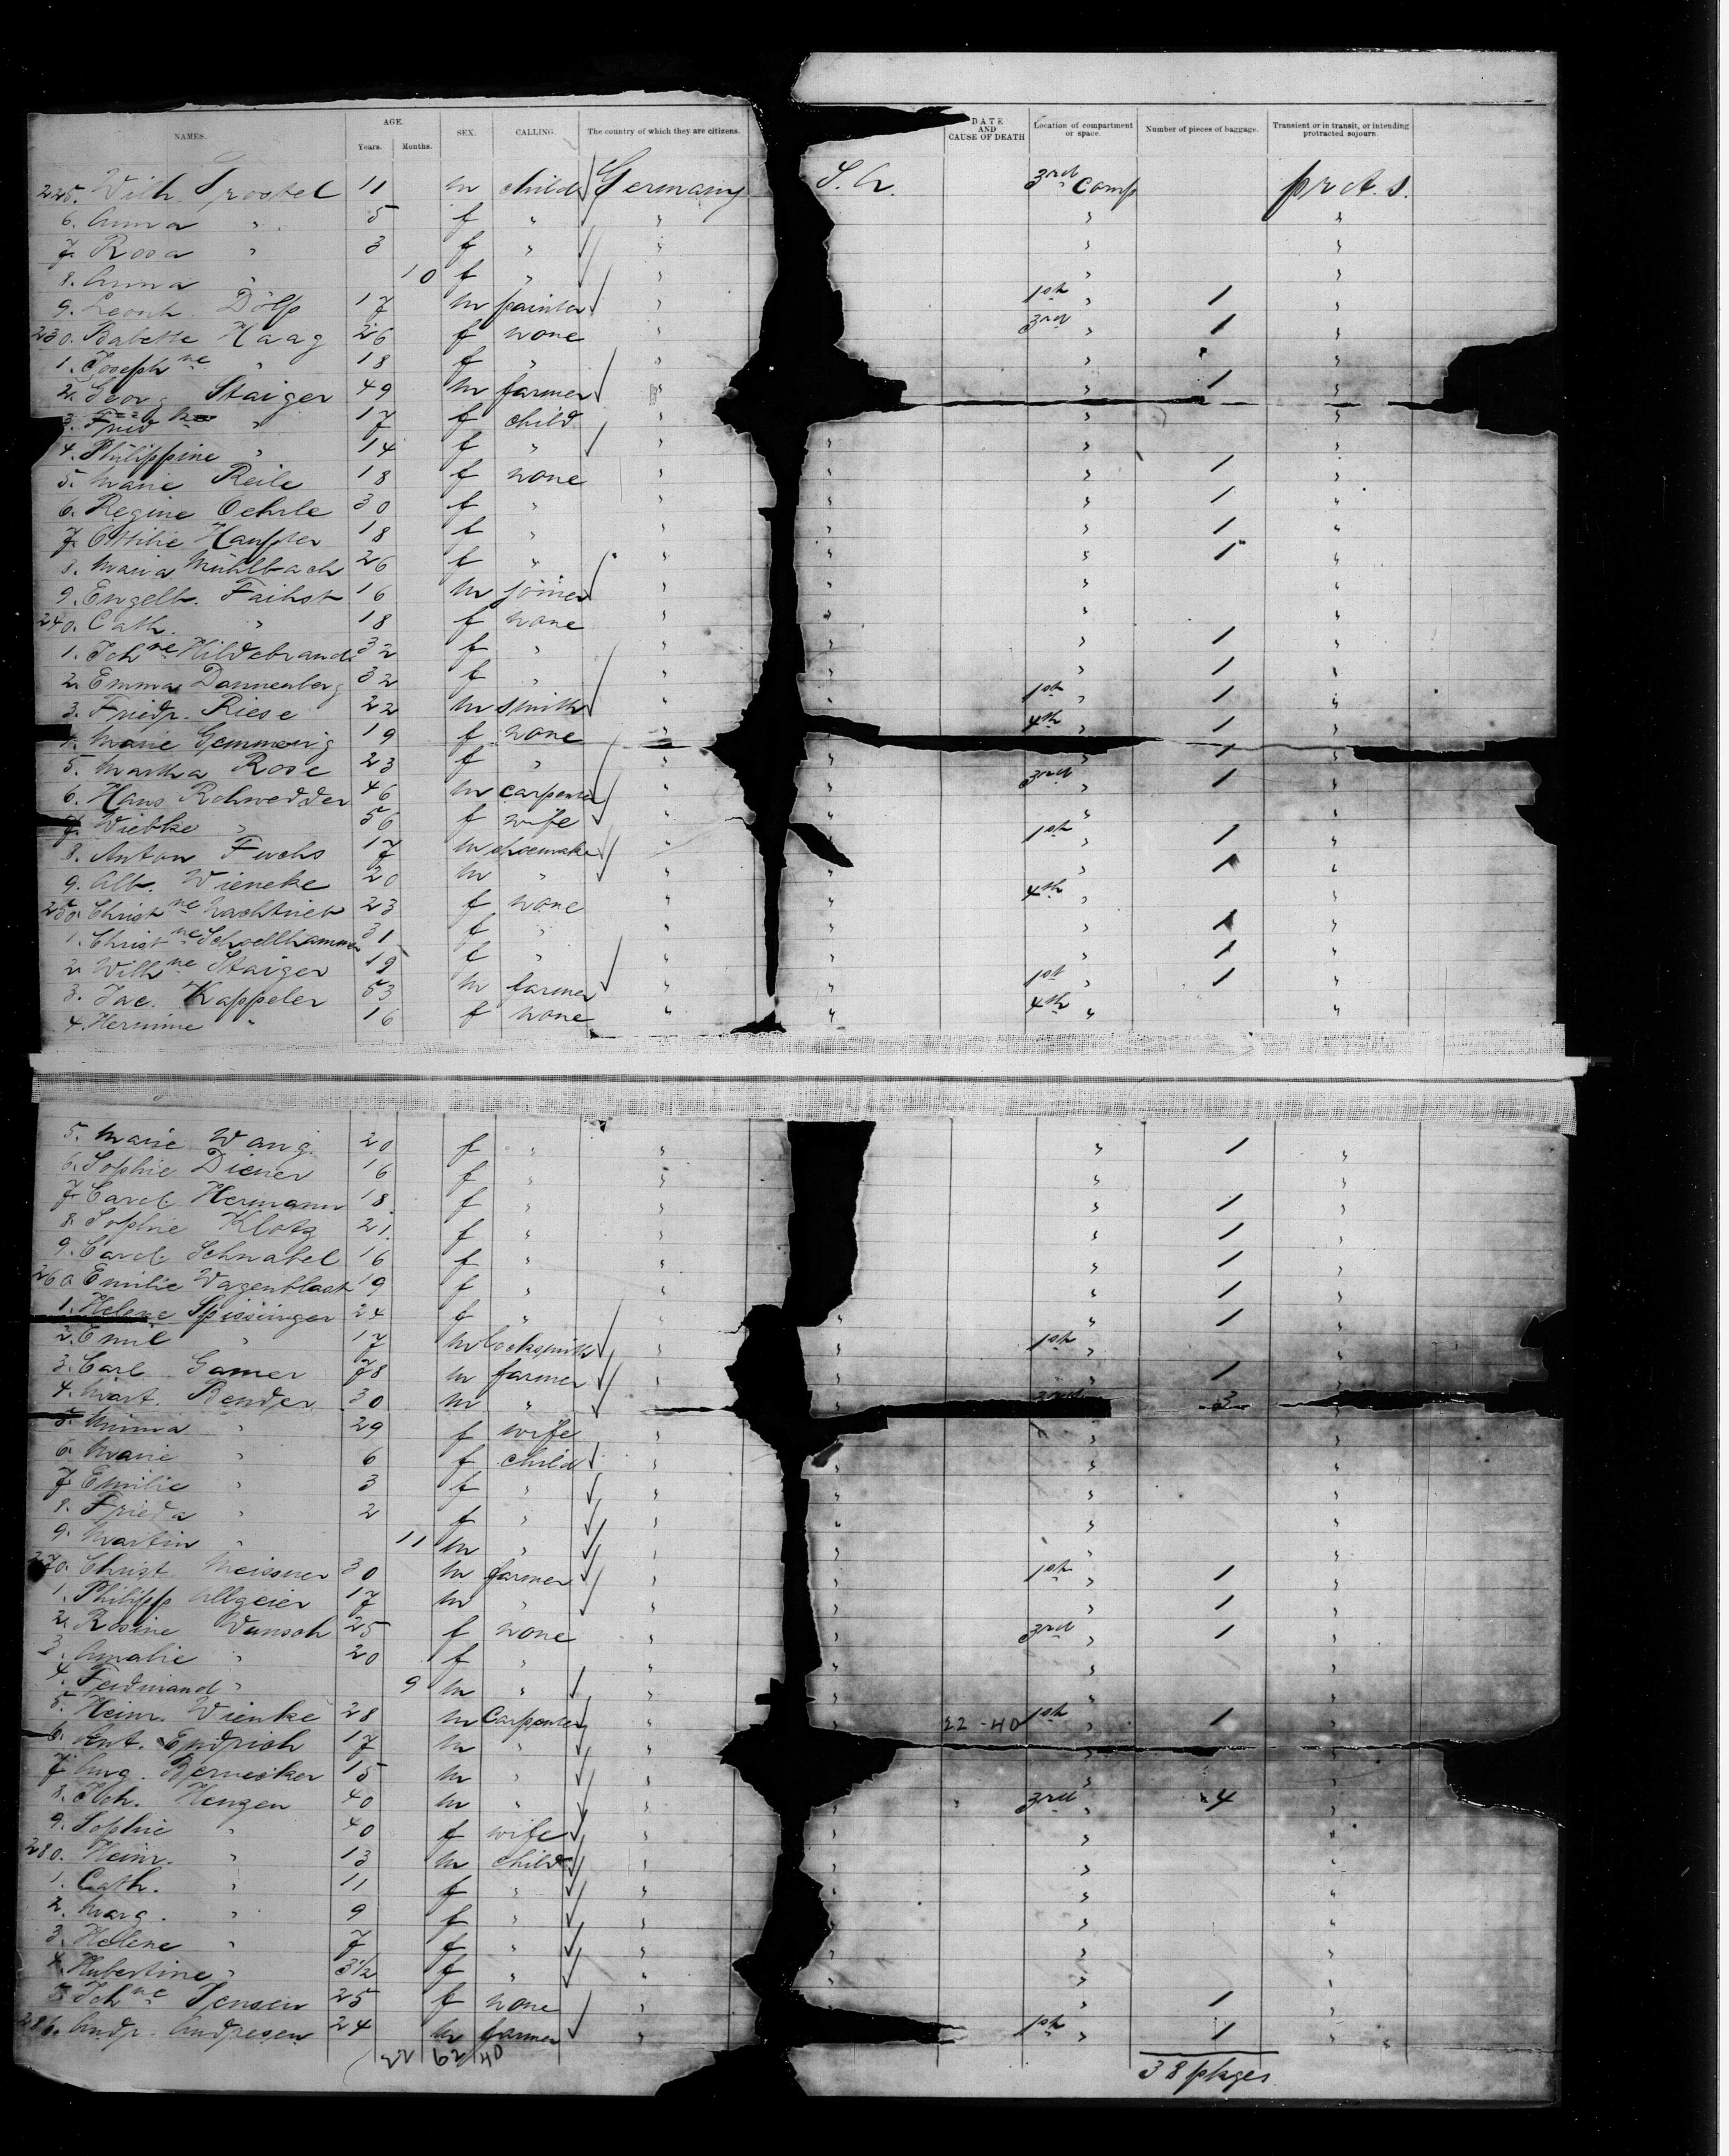 NAMES. AGE. Years. Months. SEX. CALLING. The country of which they are citizens. DATE AND CAUSE OF DEATH Location of compartment or space. Number of pieces of baggage. Transient or in transit, or intending protracted sojourn.
225. Wilh. Trostel 11 m child Germany 3rd Comp prct. s.
6. Anna " 5 f " " " "
7. Rosa " 3 f " " " "
8. Anna " 10 f " " " "
9. Leonh. Dölfs 17 m painter " 1st " 1 "
230. Babette Haag 26 f none " 3rd " 1 "
1. Joseph ne " 18 f " " " "
2. Georg Staiger 49 m farmer " " 1 "
3. Fried ke " 17 f child " " "
4. Philippine " 14 f " " " " "
5. Marie Reile 18 f none " " " 1 "
6. Regine Oehrle 30 f " " " " 1 "
7. Ottilie Haupter 18 f " " " " 1 "
8. Maria Mühlbach 26 f " " " " 1 "
9. Engelb. Faihst 16 m joiner " " " "
240. Cath. " 18 f none " " " "
1. Joh ne Hildebrandt 32 f " " " " 1 "
2. Emma Dannenberg 32 f " " " " 1 "
3. Friedr. Riese 22 m smith " " 1st " 1 "
4. Marie Gemmerig 19 f none " 4th " 1 "
5. Martha Rose 23 f " " " 1 "
6. Hans Rohwedder 46 m carpenter " " 3rd " 1 "
7. Wiebke " 56 f wife " " " "
8. Anton Fuchs 17 m shoemaker " " 1st " 1 "
9. Alb. Wieneke 20 m " " " " 1 "
250. Christ ne Nachtrieb 23 f none " " 4th " "
1. Christ ne Schoellhammer 31 f " " " 1 "
2. Wilh ne Staiger 19 f " " " 1 "
3. Jac. Kappeler 53 m farmer " " 1st " 1 "
4. Hermine " 16 f none " " 4th " "
5. Marie Wang. 20 f " " " 1 "
6. Sophie Diener 16 f " " " "
7. Carol. Hermann 18 f " " " 1 "
8. Sophie Klotz 21. f " " " 1 "
9. Carol. Schnabel 16 f " " " 1 "
260 Emilie Wagenblast 19 f " " " 1 "
1. Helene Spissinger 24 f " " " " 1 "
2. Emil " 17 m locksmith " " 1st " "
3. Carl Gamer 28 m farmer " " " 1 "
4. Mart. Bender 30 m " " 3rd 3 "
5. Minna " 29 f wife " " "
6. Marie " 6 f child " " " "
7. Emilie " 3 f " " " " "
8. Frieda " 2 f " " " " "
9. Martin " 11 m " " " " "
270. Christ. Meissner 30 m farmer " " 1st " 1 "
1. Philipp Allgeier 17 m " " " " 1 "
2. Rosine Wunsch 25 f none " " 3rd " 1 "
3. Amalie " 20 f " " " " "
4. Ferdinand " 9 m " " " " "
5. Heinr. Wienke 28 m Carpenter " " 22-40 1st " 1 "
6. Ant. Endrich 17 m " " " "
7. Aug. Bernecker 15 m " " " "
8. Joh. Hengen 40 m " " " 3rd " 4 "
9. Sophie " 40 f wife " " "
280. Heinr. " 13 m child " " "
1. Cath. " 11 f " " " "
2. Marg. " 9 f " " " "
3. Helene " 7 f " " " " "
4. Hubertine " 3½ f " " " " "
5. Joh ne Jensen 25 f none " " " 1 "
286. Andr. Andresen 24 m farmer " 1st " 1 "
22 62 40
38 pkges